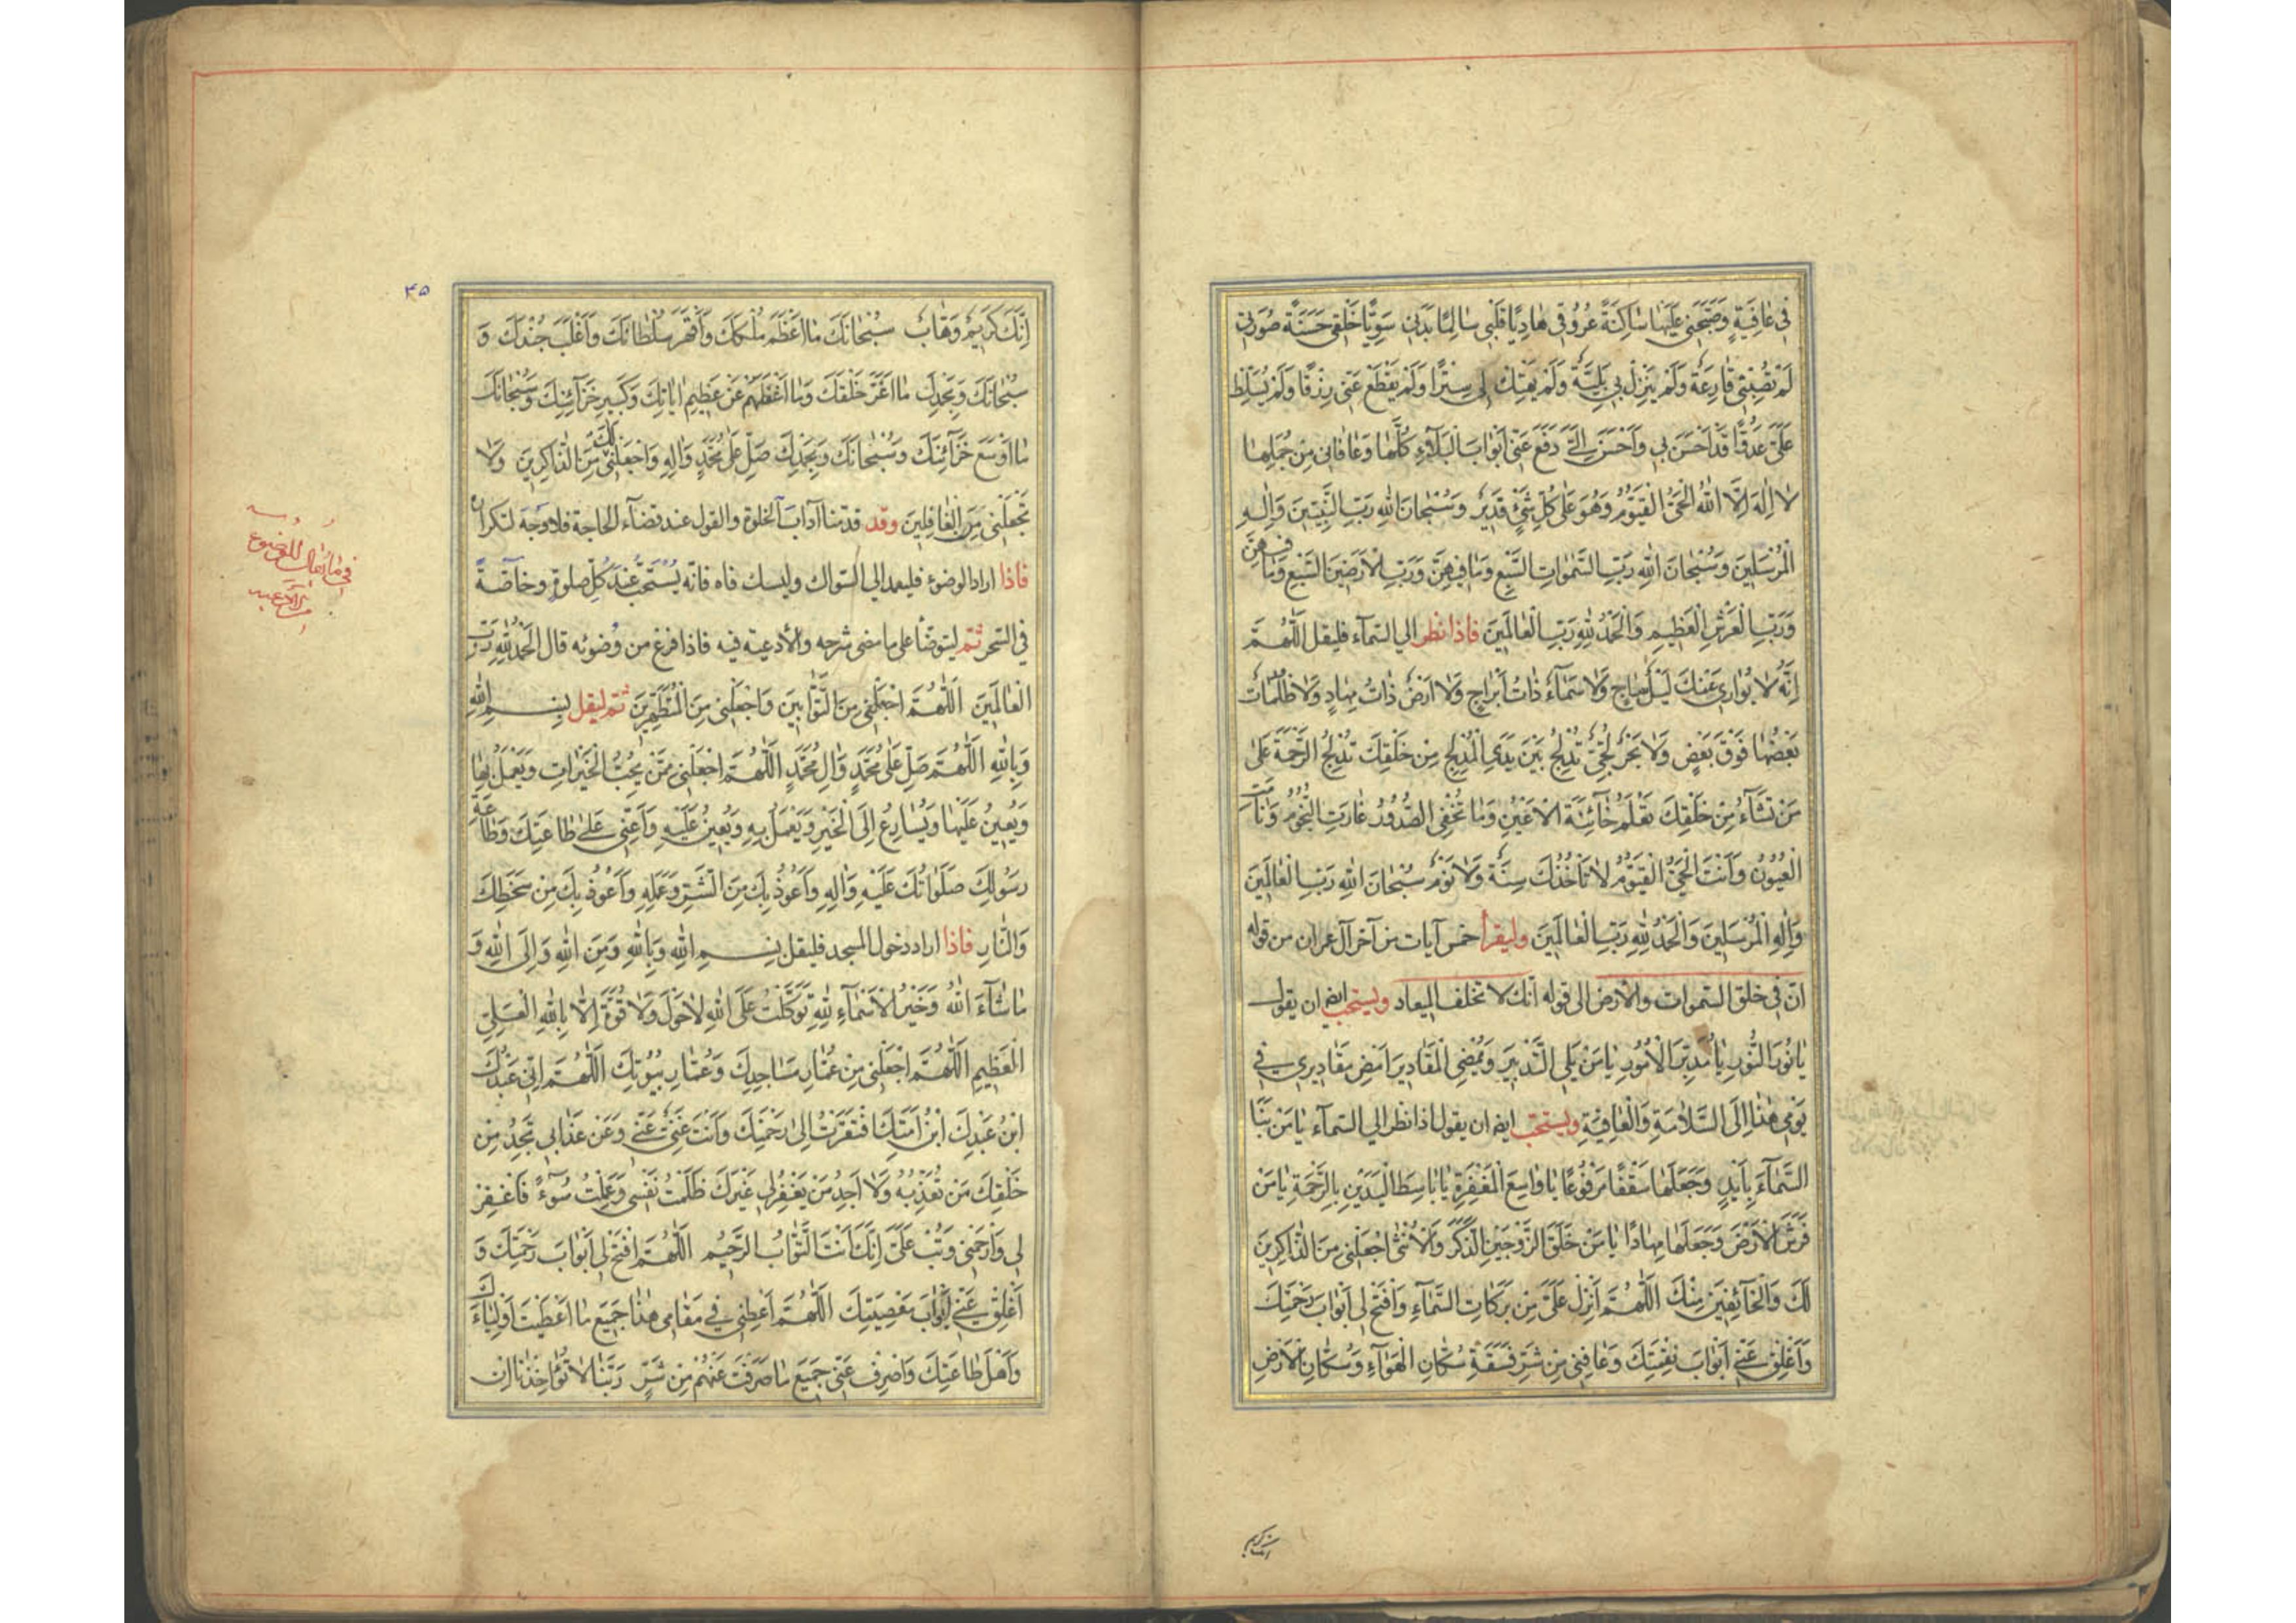 في عافِيَةٍ وَصَبَّحَني عَلَيْها ساكِنَةً عُرُوقي هادِيًا قَلْبي سالِمًا بَدَني سَوِيًّا خَلْقي حَسَنَةً صُورَتي
لَمْ تُصِبْني قارِعَةٌ وَلَمْ يَنْزِلْ بي بَلِيَّةٌ وَلَمْ يَهْتِكْ لي سِتْرًا وَلَمْ يَقْطَعْ عَنّي رِزْقًا وَلَمْ يُسَلِّطْ
عَلَيَّ عَدُوًّا قَدْ اَحْسَنَ بي وَاَحْسَنَ اِلَيَّ دَفَعَ عَنّي اَبْوابَ الْبَلاءِ كُلَّها وَعافاني مِنْ جُمْلَتِها
لا اِلهَ اِلَّا اللهُ الْحَيُّ الْقَيُّومُ وَهُوَ عَلى كُلِّ شَيْءٍ قَديرٌ وَسُبْحانَ اللهِ رَبِّ النَّبِيّينَ وَاِلهِ
الْمُرْسَلينَ وَسُبْحانَ اللهِ رَبِّ السَّمواتِ السَّبْعِ وَما فيهِنَّ وَرَبِّ الْاَرَضينَ السَّبْعِ وَما فيهِنَّ
وَرَبِّ الْعَرْشِ الْعَظيمِ وَالْحَمْدُ لِلّهِ رَبِّ الْعالَمينَ فاذا نظر الي السّمآء فليقل اَللّهُمَّ
اِنَّهُ لا يُواري عَنْكَ لَيْلٌ ساجٍ وَلا سَمآءٌ ذاتُ اَبْراجٍ وَلا اَرْضٌ ذاتُ مِهادٍ وَلا ظُلُماتٌ
بَعْضُها فَوْقَ بَعْضٍ وَلا بَحْرٌ لُجِّيٌّ تُدْلِجُ بَيْنَ يَدَيِ الْمُدْلِجِ مِنْ خَلْقِكَ تُدْلِجُ الرَّحْمَةَ عَلى
مَنْ تَشآءُ مِنْ خَلْقِكَ تَعْلَمُ خآئِنَةَ الْاَعْيُنِ وَما تُخْفِي الصُّدُورُ غارَتِ النُّجُومُ وَنامَتِ
الْعُيُونُ وَاَنْتَ الْحَيُّ الْقَيُّومُ لا تَأْخُذُكَ سِنَةٌ وَلا نَوْمٌ سُبْحانَ اللهِ رَبِّ الْعالَمينَ
وَاِلهِ الْمُرْسَلينَ وَالْحَمْدُ لِلّهِ رَبِّ الْعالَمينَ وليقرأ خمس آيات من آخر آل عمران من قوله
انّ في خلق السّموات والأرض الى قوله انّك لا تخلف الميعاد ويستحب ايضا ان يقول
يا نُورَ النُّورِ يا مُدَبِّرَ الْاُمُورِ يا مَنْ يَلِي التَّدْبيرَ وَيُمْضِي الْمَقاديرَ اَمْضِ مَقاديري في
يَوْمي هذا اِلَى السَّلامَةِ وَالْعافِيَةِ ويستحب ايضا ان يقول اذا نظر الي السّمآء يا مَنْ بَنَا
السَّمآءَ بِاَيْدٍ وَجَعَلَها سَقْفًا مَرْفُوعًا يا واسِعَ الْمَغْفِرَةِ يا باسِطَ الْيَدَيْنِ بِالرَّحْمَةِ يا مَنْ
فَرَشَ الْاَرْضَ وَجَعَلَها مِهادًا يا مَنْ خَلَقَ الزَّوْجَيْنِ الذَّكَرَ وَالْاُنْثى اِجْعَلْني مِنَ الذّاكِرينَ
لَكَ وَالْخآئِفينَ مِنْكَ اَللّهُمَّ اَنْزِلْ عَلَيَّ مِنْ بَرَكاتِ السَّمآءِ وَافْتَحْ لي اَبْوابَ رَحْمَتِكَ
وَاَغْلِقْ عَنّي اَبْوابَ نِقْمَتِكَ وَعافِني مِنْ شَرِّ فَسَقَةِ سُكّانِ الْهَوآءِ وَسُكّانِ الْاَرْضِ
انك كريم
۴۵
اِنَّكَ كَريمٌ وَهّابٌ سُبْحانَكَ ما اَعْظَمَ مُلْكَكَ وَاَقْهَرَ سُلْطانَكَ وَاَغْلَبَ جُنْدَكَ وَ
سُبْحانَكَ وَبِحَمْدِكَ ما اَغَرَّ خَلْقَكَ وَما اَغْفَلَهُمْ عَنْ عَظيمِ اياتِكَ وَكَبيرِ خَزآئِنِكَ وَسُبْحانَكَ
ما اَوْسَعَ خَزآئِنَكَ وَسُبْحانَكَ وَبِحَمْدِكَ صَلِّ عَلى مُحَمَّدٍ وَالِهِ وَاجْعَلْني لَكَ مِنَ الذّاكِرينَ وَلا
تَجْعَلْني مِنَ الْغافِلينَ وقد قدّمنا آداب الخلوة والقول عند قضآء الحاجة فلا وجه لتكراره
فاذا اراد الوضوء فليعمد الي السّواك وليسك فاه فانّه يستحبّ عند كلّ صلوة وخاصّة
في السّحر ثم ليتوضّأ على ما مضى شرحه والأدعية فيه فاذا فرغ من وضوئه قال اَلْحَمْدُ لِلّهِ رَبِّ
الْعالَمينَ اَللّهُمَّ اجْعَلْني مِنَ التَّوّابينَ وَاجْعَلْني مِنَ الْمُتَطَهِّرينَ ثم ليقل بِسْمِ اللهِ
وَبِاللهِ اَللّهُمَّ صَلِّ عَلى مُحَمَّدٍ وَالِ مُحَمَّدٍ اَللّهُمَّ اجْعَلْني مِمَّنْ يُحِبُّ الْخَيْراتِ وَيَعْمَلُ بِها
وَيُعينُ عَلَيْها وَيُسارِعُ اِلَى الْخَيْرِ وَيَعْمَلُ بِهِ وَيُعينُ عَلَيْهِ وَاَعِنّي عَلى طاعَتِكَ وَطاعَةِ
رَسُولِكَ صَلَواتُكَ عَلَيْهِ وَالِهِ وَاَعُوذُ بِكَ مِنَ الشَّرِّ وَعَمَلِهِ وَاَعُوذُ بِكَ مِنْ سَخَطِكَ
وَالنّارِ فاذا اراد دخول المسجد فليقل بِسْمِ اللهِ وَبِاللهِ وَمِنَ اللهِ وَاِلَى اللهِ وَ
ما شآءَ اللهُ وَخَيْرُ الْاَسْمآءِ لِلّهِ تَوَكَّلْتُ عَلَى اللهِ لا حَوْلَ وَلا قُوَّةَ اِلّا بِاللهِ الْعَلِيِّ
الْعَظيمِ اَللّهُمَّ اجْعَلْني مِنْ عُمّارِ مَساجِدِكَ وَعُمّارِ بُيُوتِكَ اَللّهُمَّ اِنّي عَبْدُكَ
ابْنُ عَبْدِكَ ابْنُ اَمَتِكَ افْتَقَرْتُ اِلى رَحْمَتِكَ وَاَنْتَ غَنِيٌّ عَنّي وَعَنْ عَذابي تَجِدُ مِنْ
خَلْقِكَ مَنْ تُعَذِّبُهُ وَلا اَجِدُ مَنْ يَغْفِرُ لي غَيْرَكَ ظَلَمْتُ نَفْسي وَعَمِلْتُ سُوءًا فَاغْفِرْ
لي وَارْحَمْني وَتُبْ عَلَيَّ اِنَّكَ اَنْتَ التَّوّابُ الرَّحيمُ اَللّهُمَّ افْتَحْ لي اَبْوابَ رَحْمَتِكَ وَ
اَغْلِقْ عَنّي اَبْوابَ مَعْصِيَتِكَ اَللّهُمَّ اَعْطِني في مَقامي هذا جَميعَ ما اَعْطَيْتَ اَوْلِيآءَكَ
وَاَهْلَ طاعَتِكَ وَاصْرِفْ عَنّي جَميعَ ما صَرَفْتَ عَنْهُمْ مِنْ شَرٍّ رَبَّنا لا تُؤاخِذْنا اِنْ
للوضوء